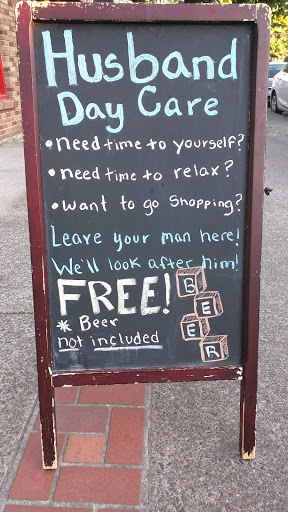 Husband
Day Care
• need time to yourself?
• need time to relax?
• want to go shopping?
Leave your man here!
We'll look after him!
FREE!
* Beer
not included
B
E
E
R